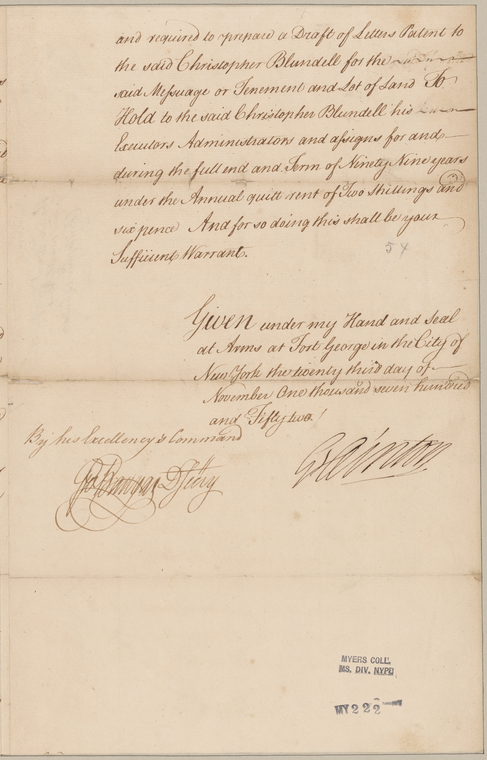 and required to prepare a Draft of Letters Patent to
the said Christopher Blundell for the
said Messuage or Tenement and Lot of Land To
Hold to the said Christopher Blundell his
Executors Administrators and assigns for and
during the full end and Term of Ninety Nine years
under the Annual quitt rent of Two Shillings and
six pence And for so doing this shall be your
Sufficient Warrant.
54
Given under my Hand and Seal
at Arms at Fort George in the City of
New York the twenty third day of
November One thousand seven hundred
and Fifty two!
By his Excellency's Command
G Clinton
Geo Banyar D Secry
MYERS COLL.
MS. DIV. NYPL
MY 222